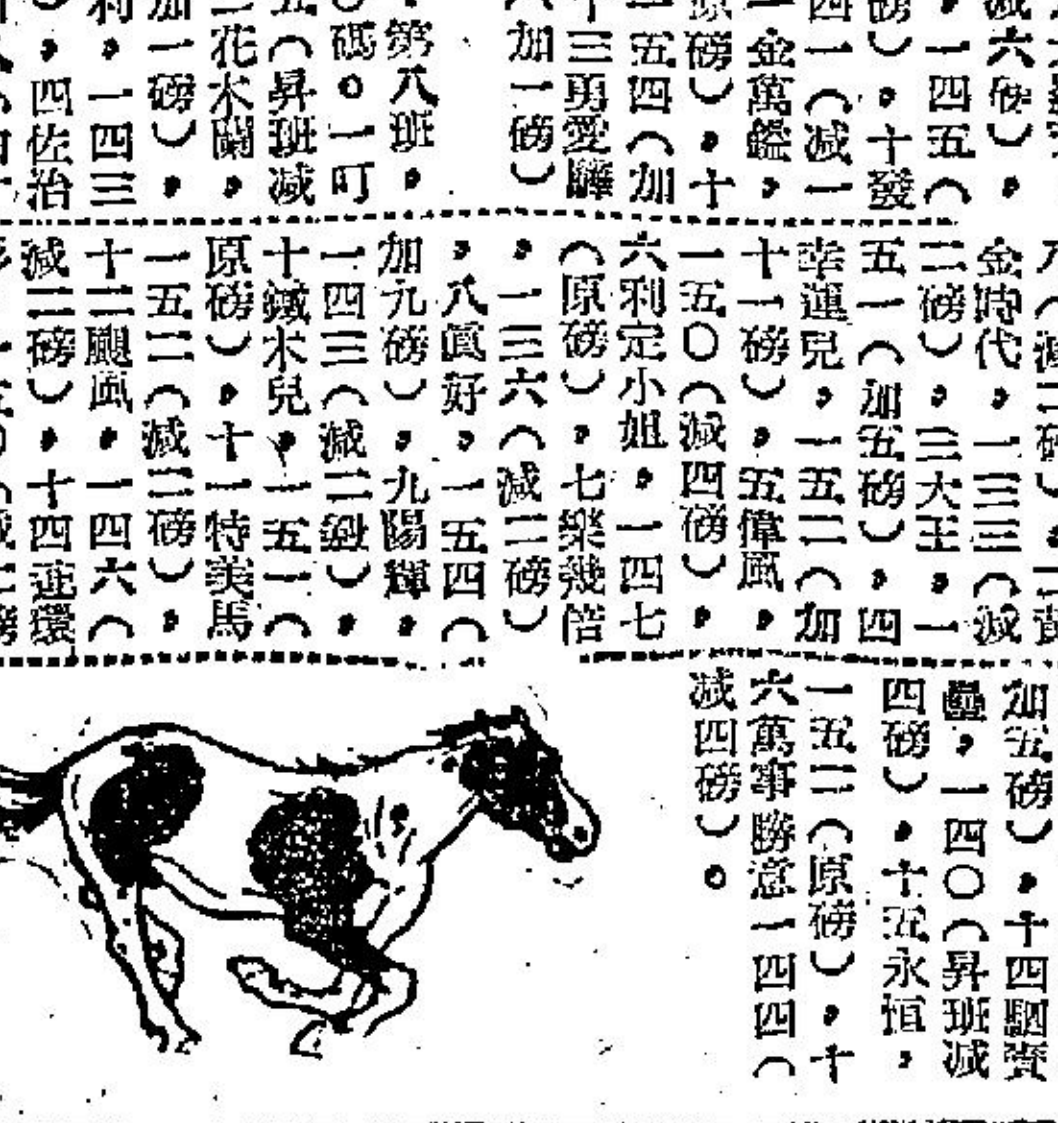 减六磅），
，一四五（
磅），十發
四一（减一
一金萬鑑，
原磅），十
一五四（加
十三勇愛
加一磅）
，第八班，
碼。一叮
五（昇班减
二花木蘭，
加一磅），
利，一四三
，四佐治
金時代，一三三（减
二磅），三大王，一
五一（加五磅），四
幸運兒，一五二（加
十一磅），五偉風，
一五〇（减四磅），
六利定小姐，一四七
（原磅），七樂幾倍
，一三六（减二磅）
，八眞好，一五四（
加九磅），九陽輝，
一四三（减二磅），
十鐵木兒，一五一（
原磅），十一特美馬
一五二（减三磅），
十二颶風，一四六（
减三磅），十四連環
加五磅），十四駟
壘，一四〇（昇班减
四磅），十五永恒，
一五二（原磅），十
六萬事勝意一四四（
减四磅）。